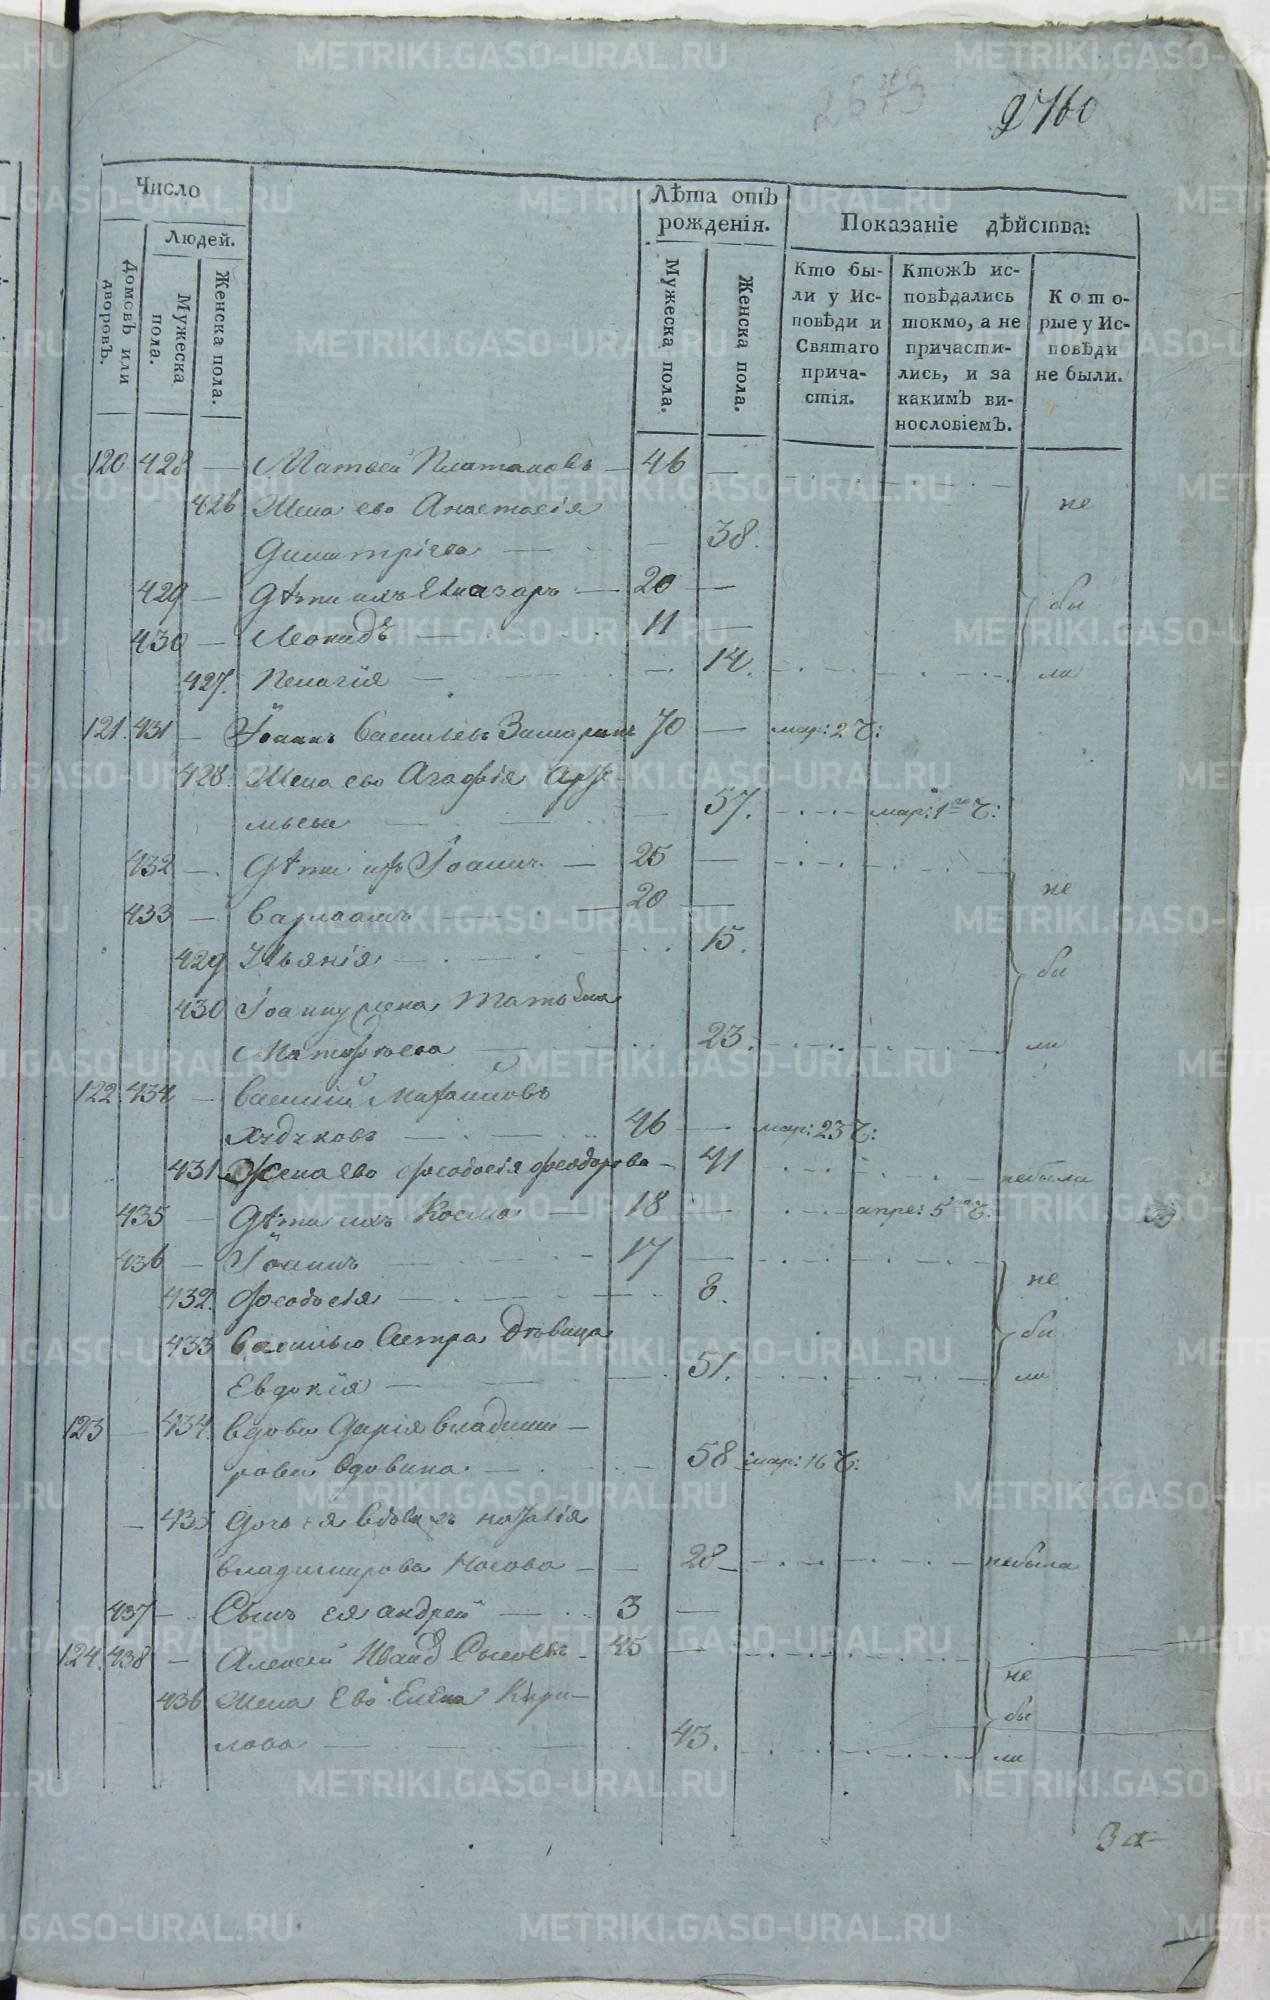 2760
Число
Лѣта отъ рожденія.
Показаніе дѣйства:
Людей.
Домовъ или дворовъ.
Мужеска пола.
Женска пола.
Мужеска пола.
Женска пола.
Кто были у Исповѣди и Святаго причастія.
Ктожъ исповѣдались токмо, а не причастились, и за какимъ винословіемъ.
Которые у Исповѣди не были.
120 428 — Матѳей Платоновъ — 46 —
426 Жена ево Анастасія не
Димитріева — 38.
429 — Дѣти ихъ Елиазаръ — 20 — бы
430 — Леонидъ — 11 —
427. Пелагія — 14. ли
121. 431 — Іоаннъ Васильевъ 70 — мар: 2 ч:
428. Жена ево Агафія Арте-
мьева — 57. мар: 1го ч:
432 — Дѣти ихъ Іоаннъ — 25 —
433 — Варлаамъ — 20 — не
429 Ульянія — 15. бы
430 Іоанну жена Татьяна
Матѳѣева — 23. ли
122. 434 — Василій
Худяковъ — 46 — мар: 23 ч:
431 Жена ево Феодосія Феодорова — 41 небыла
435 — Дѣти ихъ Косма — 18 — апре: 5го ч:
436 — Іоаннъ — 17 —
432. Феодосія — 8. не
433 Василью Сестра Дѣвица бы
Евдокія — 51. ли
123 — 434. Вдова Дарія Владими-
рова Вдовина — 58 мар: 16 ч:
— 435 Дочь ея вдова Наталія
Владимирова Носова — 28 — небыла
437 — Сынъ ея Андрей — 3 —
124. 438 — Алексей Иванов Сысоевъ 45 — не
436 Жена Ево Елена Кири- бы
лова — 43. ли
За-
METRIKI.GASO-URAL.RU